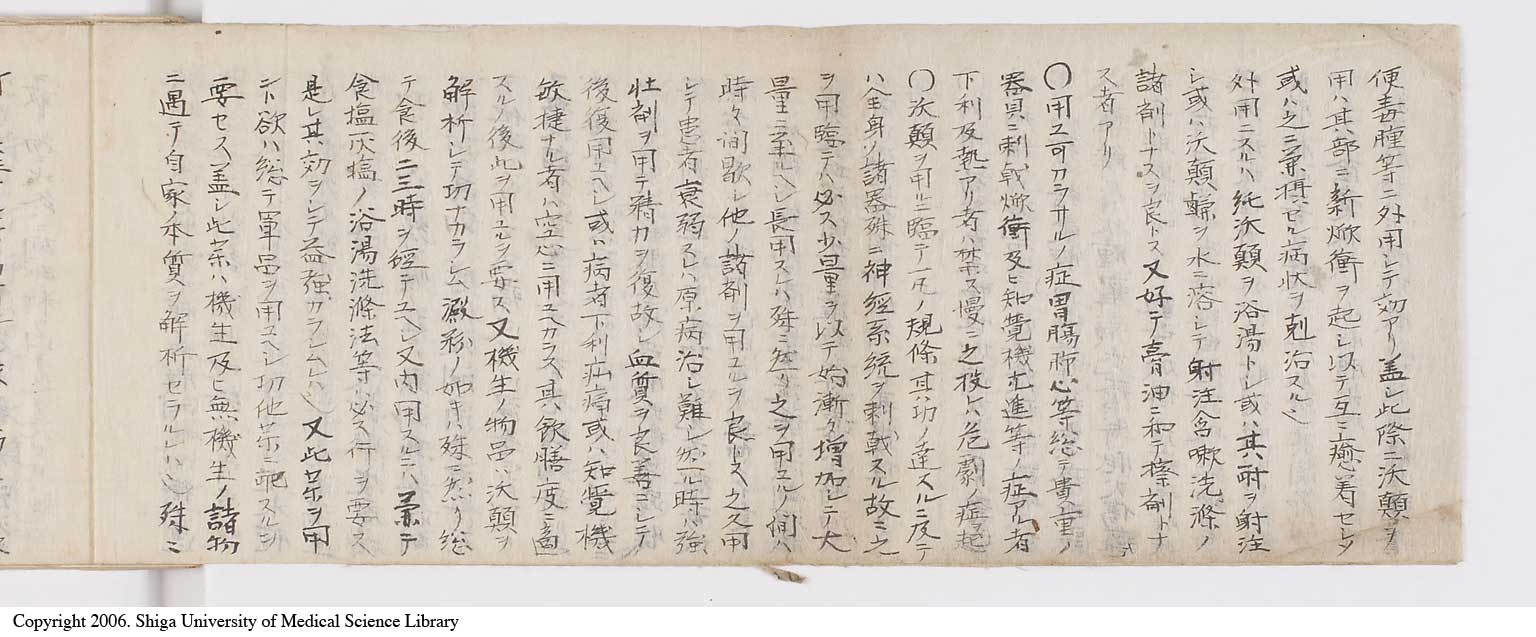 便毒腫等ニ外用シテ効アリ盖シ此際ニ沃顛ヲ
用ハ其部ニ新焮衝ヲ起シ以テ互ニ癒着セシメ
或ハ之ニ兼摂セル病状ヲ剋治スル
外用ニスルハ純沃顛ヲ浴湯トシ或ハ其酎ヲ射注
シ或ハ沃顛ヲ水ニ溶シテ射注含嗽洗滌ノ
諸剤トナスヲ良トス又好テ膏油ニ和テ擦剤トナ
ス者アリ
〇用ユ可カラサルノ症胃腸肺心等総テ貴重ノ
器具ニ刺戟焮衝及ヒ知覺機亢進等ノ症アル者
下利及熱アリ者ハ禁ス慢ニ之投レハ危劇ノ症ヲ起
〇沃顛ヲ用ルニ臨テ一凡ノ規條其功ノ達スルニ及テ
ハ全身ノ諸器殊ニ神経系統ヲ刺戟スル故ニ之
ヲ用臨テハ必ス少量ヲ以テ始漸々増加シテ大
量ニ至ルヘシ長用スヘハ殊ニ然リ之ヲ用ユルノ間ハ
時々間歇シ他ノ諸剤ヲ用ユルヲ良トス之久用
シテ患者衰弱スレハ原病治シ難シ然ル時ハ強
壮剤ヲ用テ精力ヲ復故シ血質ヲ良善ニシテ
後復用ユヘシ或ハ病者下利疝痛或ハ知覺機
敏捷ナル者ハ空心ニ用ユヘカラス其飲膳度ニ適
スルノ後此ヲ用ユルヲ要ス又機生ノ物品ハ沃顛ヲ
解析シテ功ナカラシム澱粉ノ如キハ殊ニ然リ総
テ食後二三時ヲ經テユヘシ又内用スルニハ兼テ
食塩灰塩ノ浴湯洗滌法等ハ必ス行ヲ要ス
是レ其効ヲシテ益強カラシムレハ 又此薬ヲ用
ント欲ハ総テ單品ヲ用ユヘシ切他薬ニ配スルヲ
要セス盖シ此薬ハ機生及ヒ無機生ノ諸物
ニ遇テ自家ノ本質ヲ解析セラルレハ 殊ニ
Copyright 2006. Shiga University of Medical Science Library